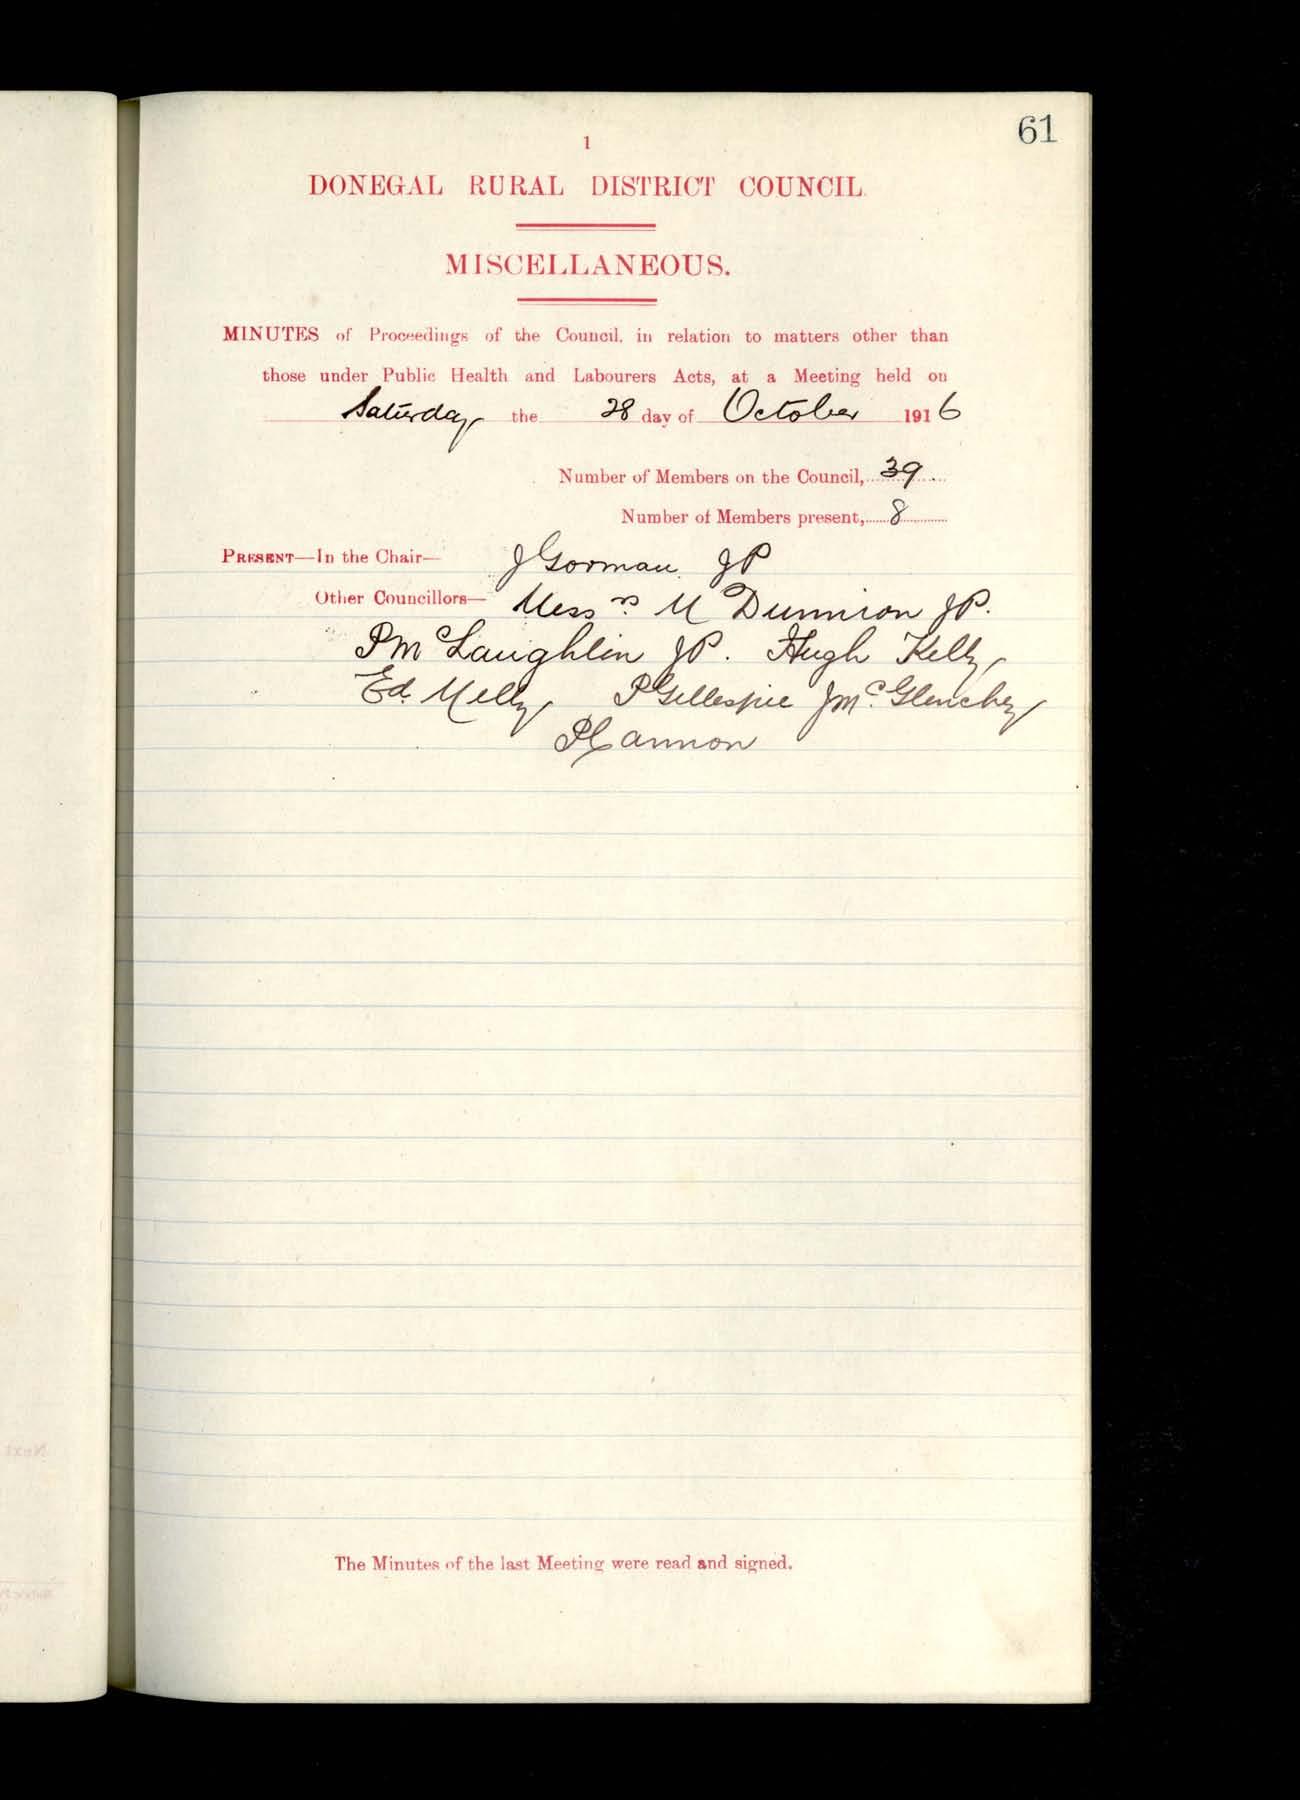 61
1
DONEGAL RURAL DISTRICT COUNCIL.
MISCELLANEOUS.
MINUTES of Proceedings of the Council, in relation to matters other than
those under Public Health and Labourers Acts, at a Meeting held on
Saturday the 28 day of October 1916
Number of Members on the Council, 39
Number of Members present, 8
PRESENT—In the Chair— J Gorman JP
Other Councillors— Messrs M Dunnion JP.
P McLaughlin JP. Hugh Kelly
Ed. Melly P Gillespie J McGlenchey
P Cannon
The Minutes of the last Meeting were read and signed.